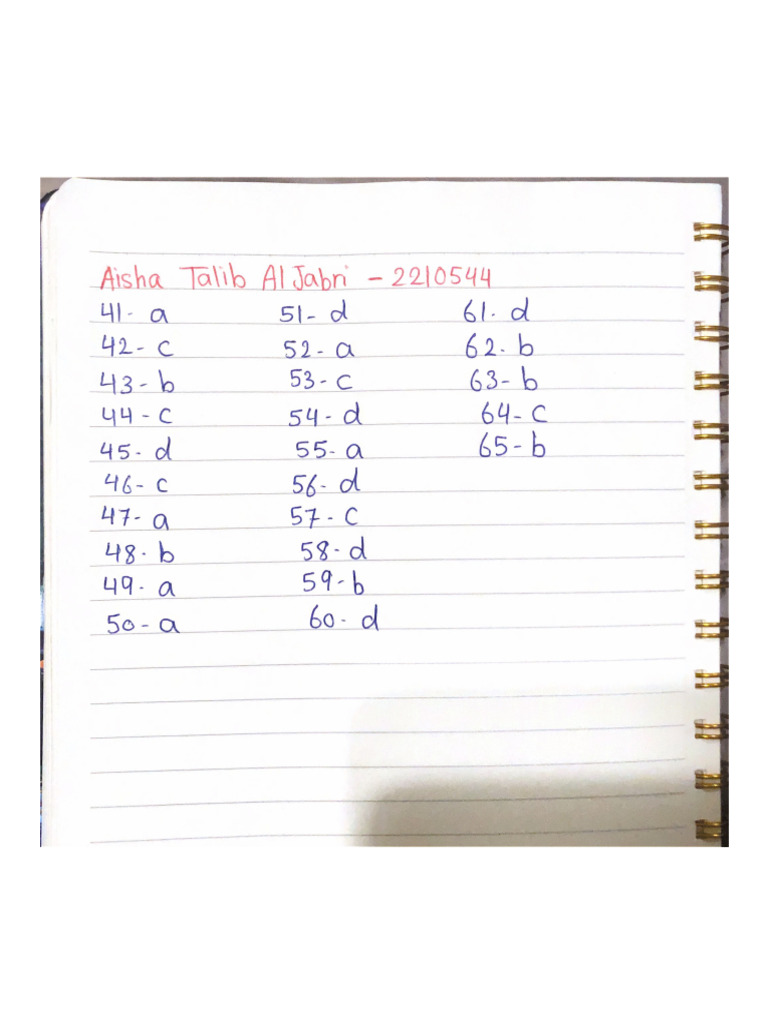 Aisha Talib Al Jabri - 2210544
41- a 51- d 61. d
42- c 52- a 62. b
43- b 53- c 63- b
44- c 54- d 64- c
45- d 55- a 65- b
46- c 56- d
47- a 57- c
48. b 58- d
49- a 59- b
50- a 60- d